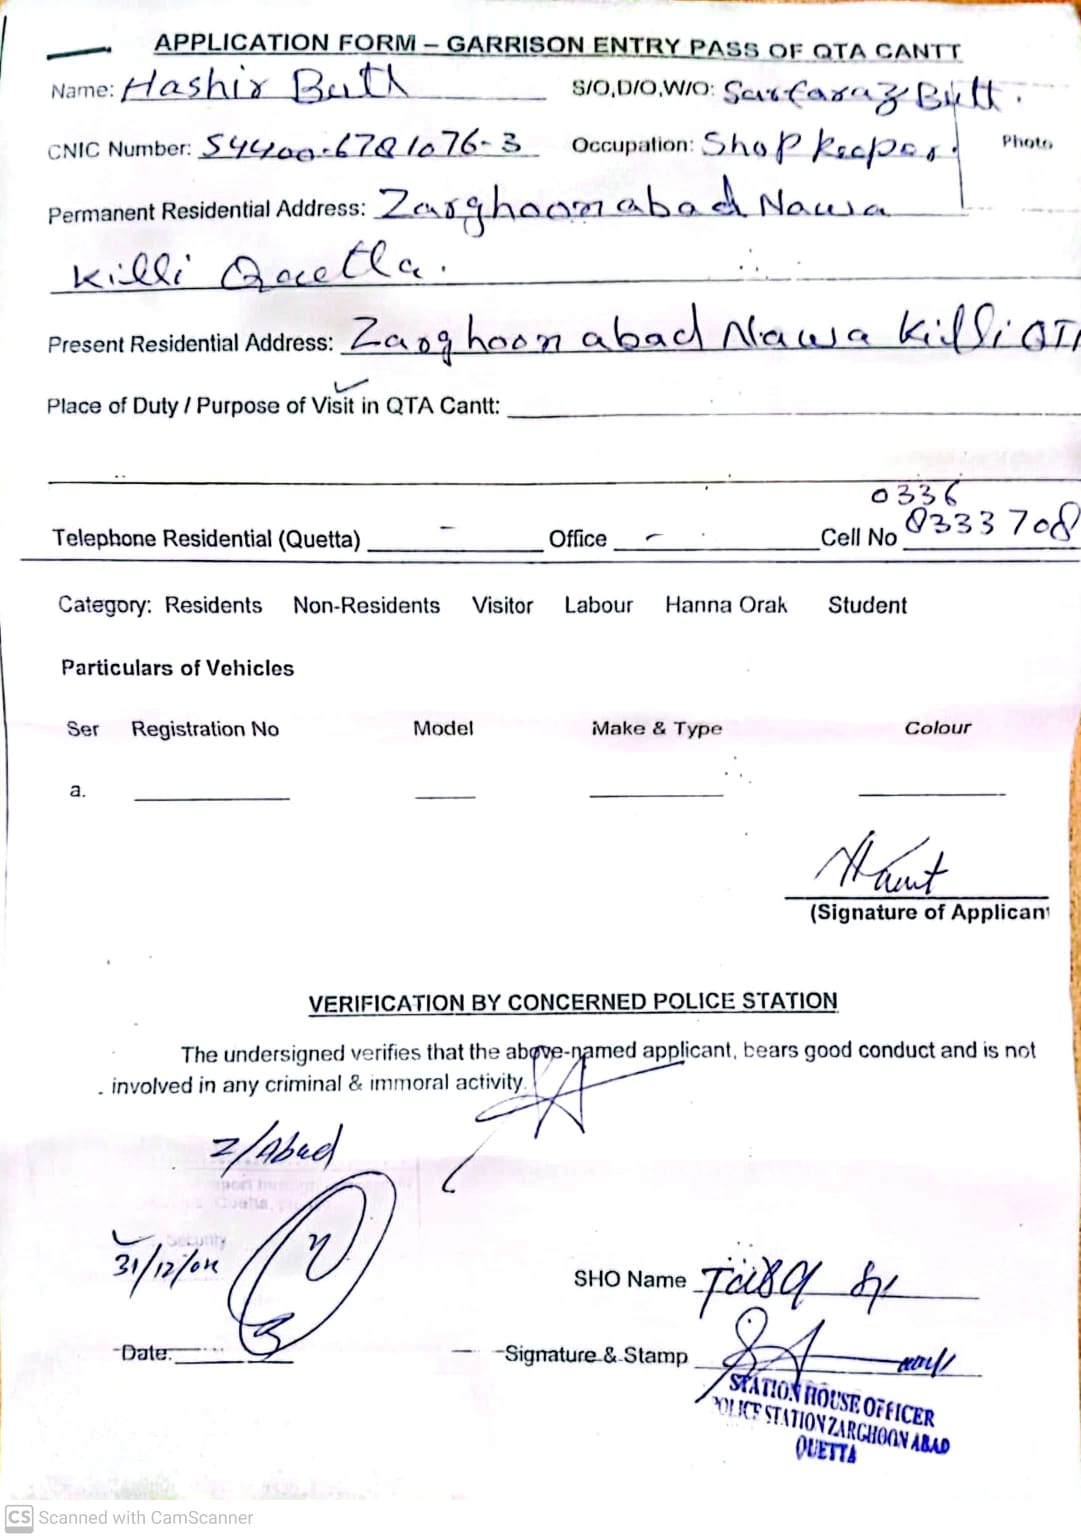 APPLICATION FORM – GARRISON ENTRY PASS OF QTA CANTT
Name: Hashir Butt S/O,D/O,W/O: Sarfaraz Butt.
CNIC Number: 54400-6781076-3 Occupation: Shop Keeper. Photo
Permanent Residential Address: Zarghoon abad Nawa
Killi Quetta.
Present Residential Address: Zarghoon abad Nawa Killi QTA
Place of Duty / Purpose of Visit in QTA Cantt:
0336
Telephone Residential (Quetta) - Office - Cell No 8333708
Category: Residents Non-Residents Visitor Labour Hanna Orak Student
Particulars of Vehicles
Ser Registration No Model Make & Type Colour
a.
(Signature of Applicant
VERIFICATION BY CONCERNED POLICE STATION
The undersigned verifies that the above-named applicant, bears good conduct and is not
involved in any criminal & immoral activity.
Z/Abad
31/12/
SHO Name
Date: Signature & Stamp
STATION HOUSE OFFICER
POLICE STATION ZARGHOON ABAD
QUETTA
CS Scanned with CamScanner